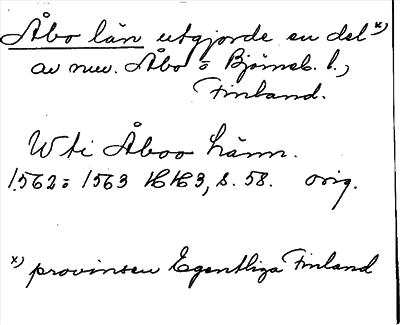 Åbo län utgjorde en del *)
av nuv. Åbo = Björneb. l.,
Finland.
W ti Åboo hänn.
1562 = 1563 HH3, s. 58. orig.
*) provinsen Egentliga Finland